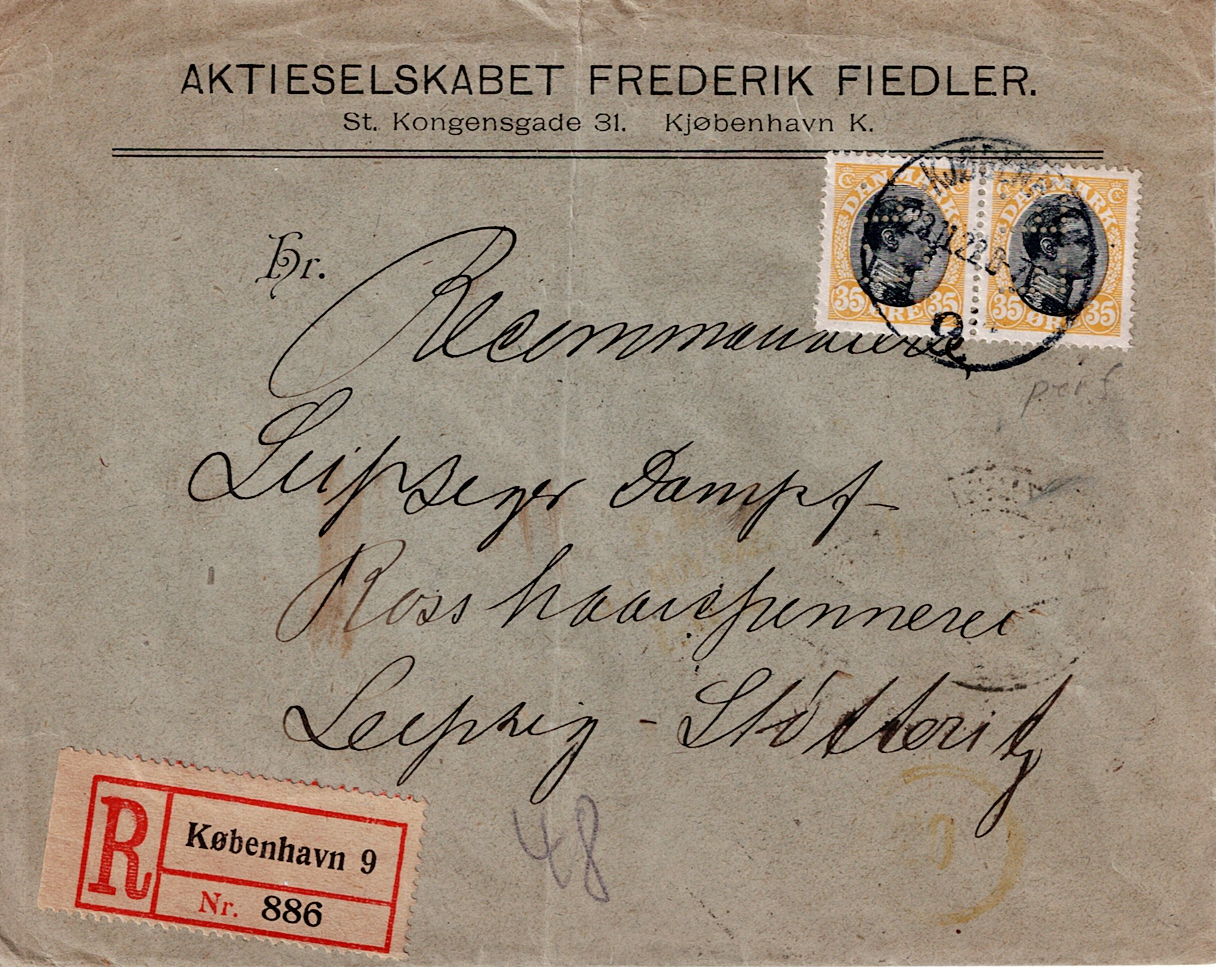 AKTIESELSKABET FREDERIK FIEDLER.
St. Kongensgade 31. Kjøbenhavn K.
DANMARK
35 ØRE 35
DANMARK
35 ØRE 35
Hr.
Recommandere
perf
Leipzeger Dampf-
Rosshaarspennerei
Leipzig - Stötteritz
R
København 9
Nr. 886
48